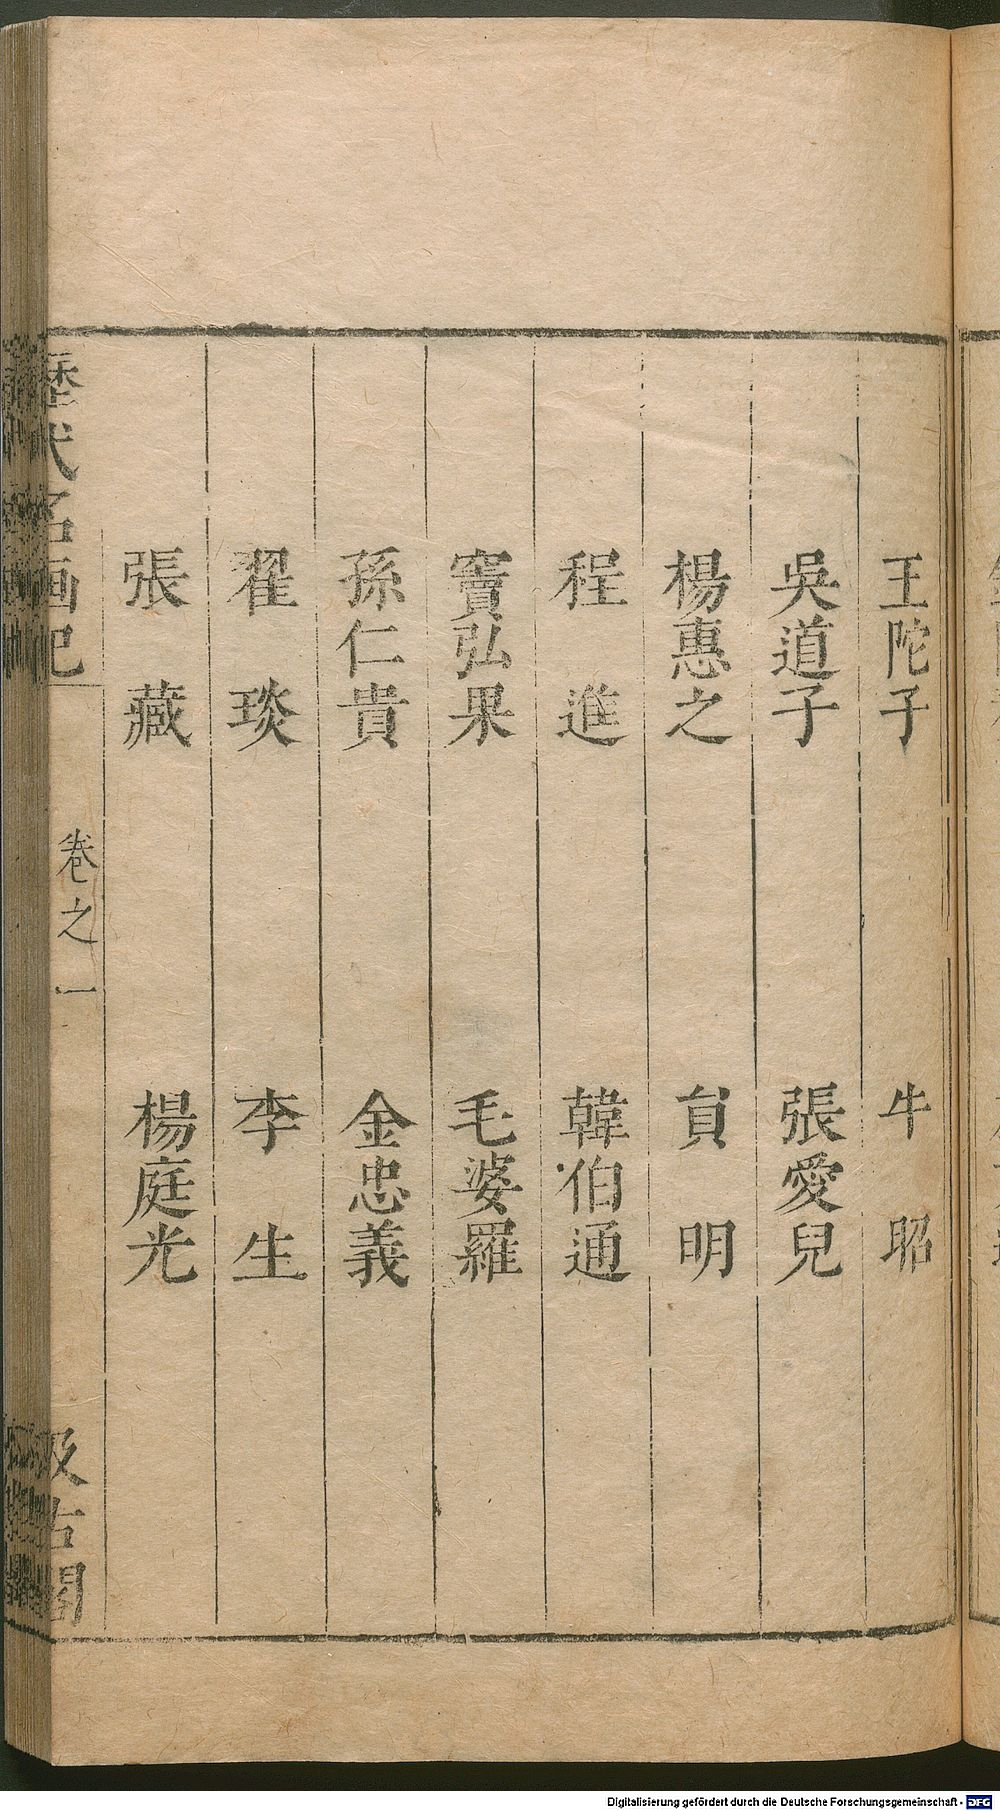 王陀子 牛昭
吳道子 張愛兒
楊惠之 貟明
程進 韓伯通
竇弘果 毛婆羅
孫仁貴 金忠義
翟琰 李生
張藏 楊庭光
歷代名画記 卷之一 汲古閣
Digitalisierung gefördert durch die Deutsche Forschungsgemeinschaft - DFG